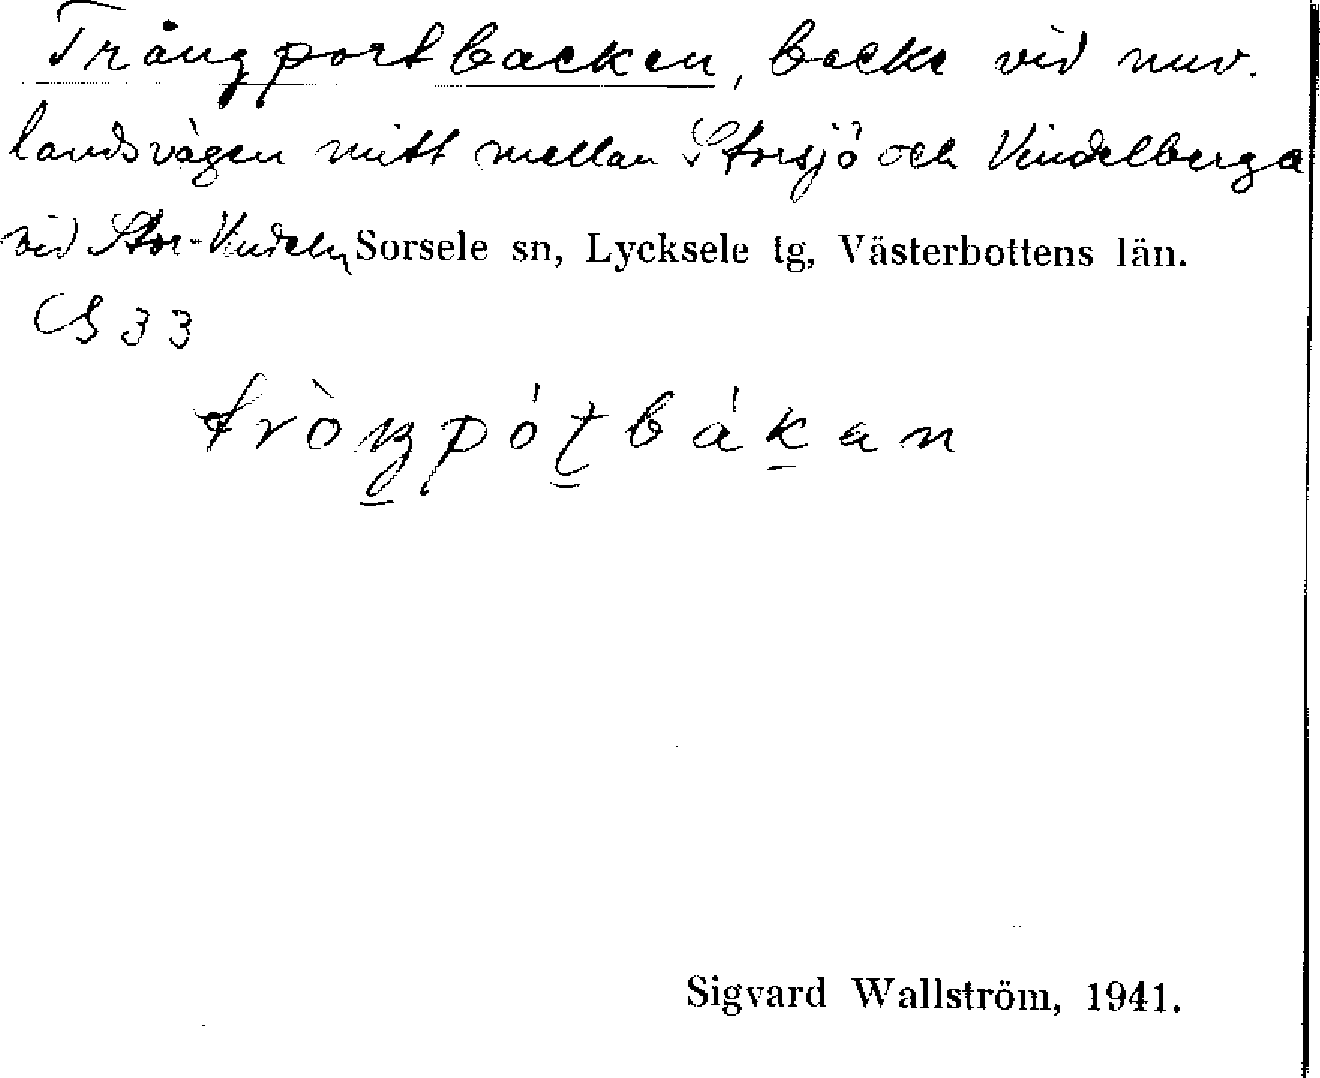 Trångportbacken, backe vid nuv.
landsvägen mitt mellan Storsjö och Vindelberga
vid Stor-Vindeln Sorsele sn, Lycksele tg, Västerbottens län.
33
Sigvard Wallström, 1941.